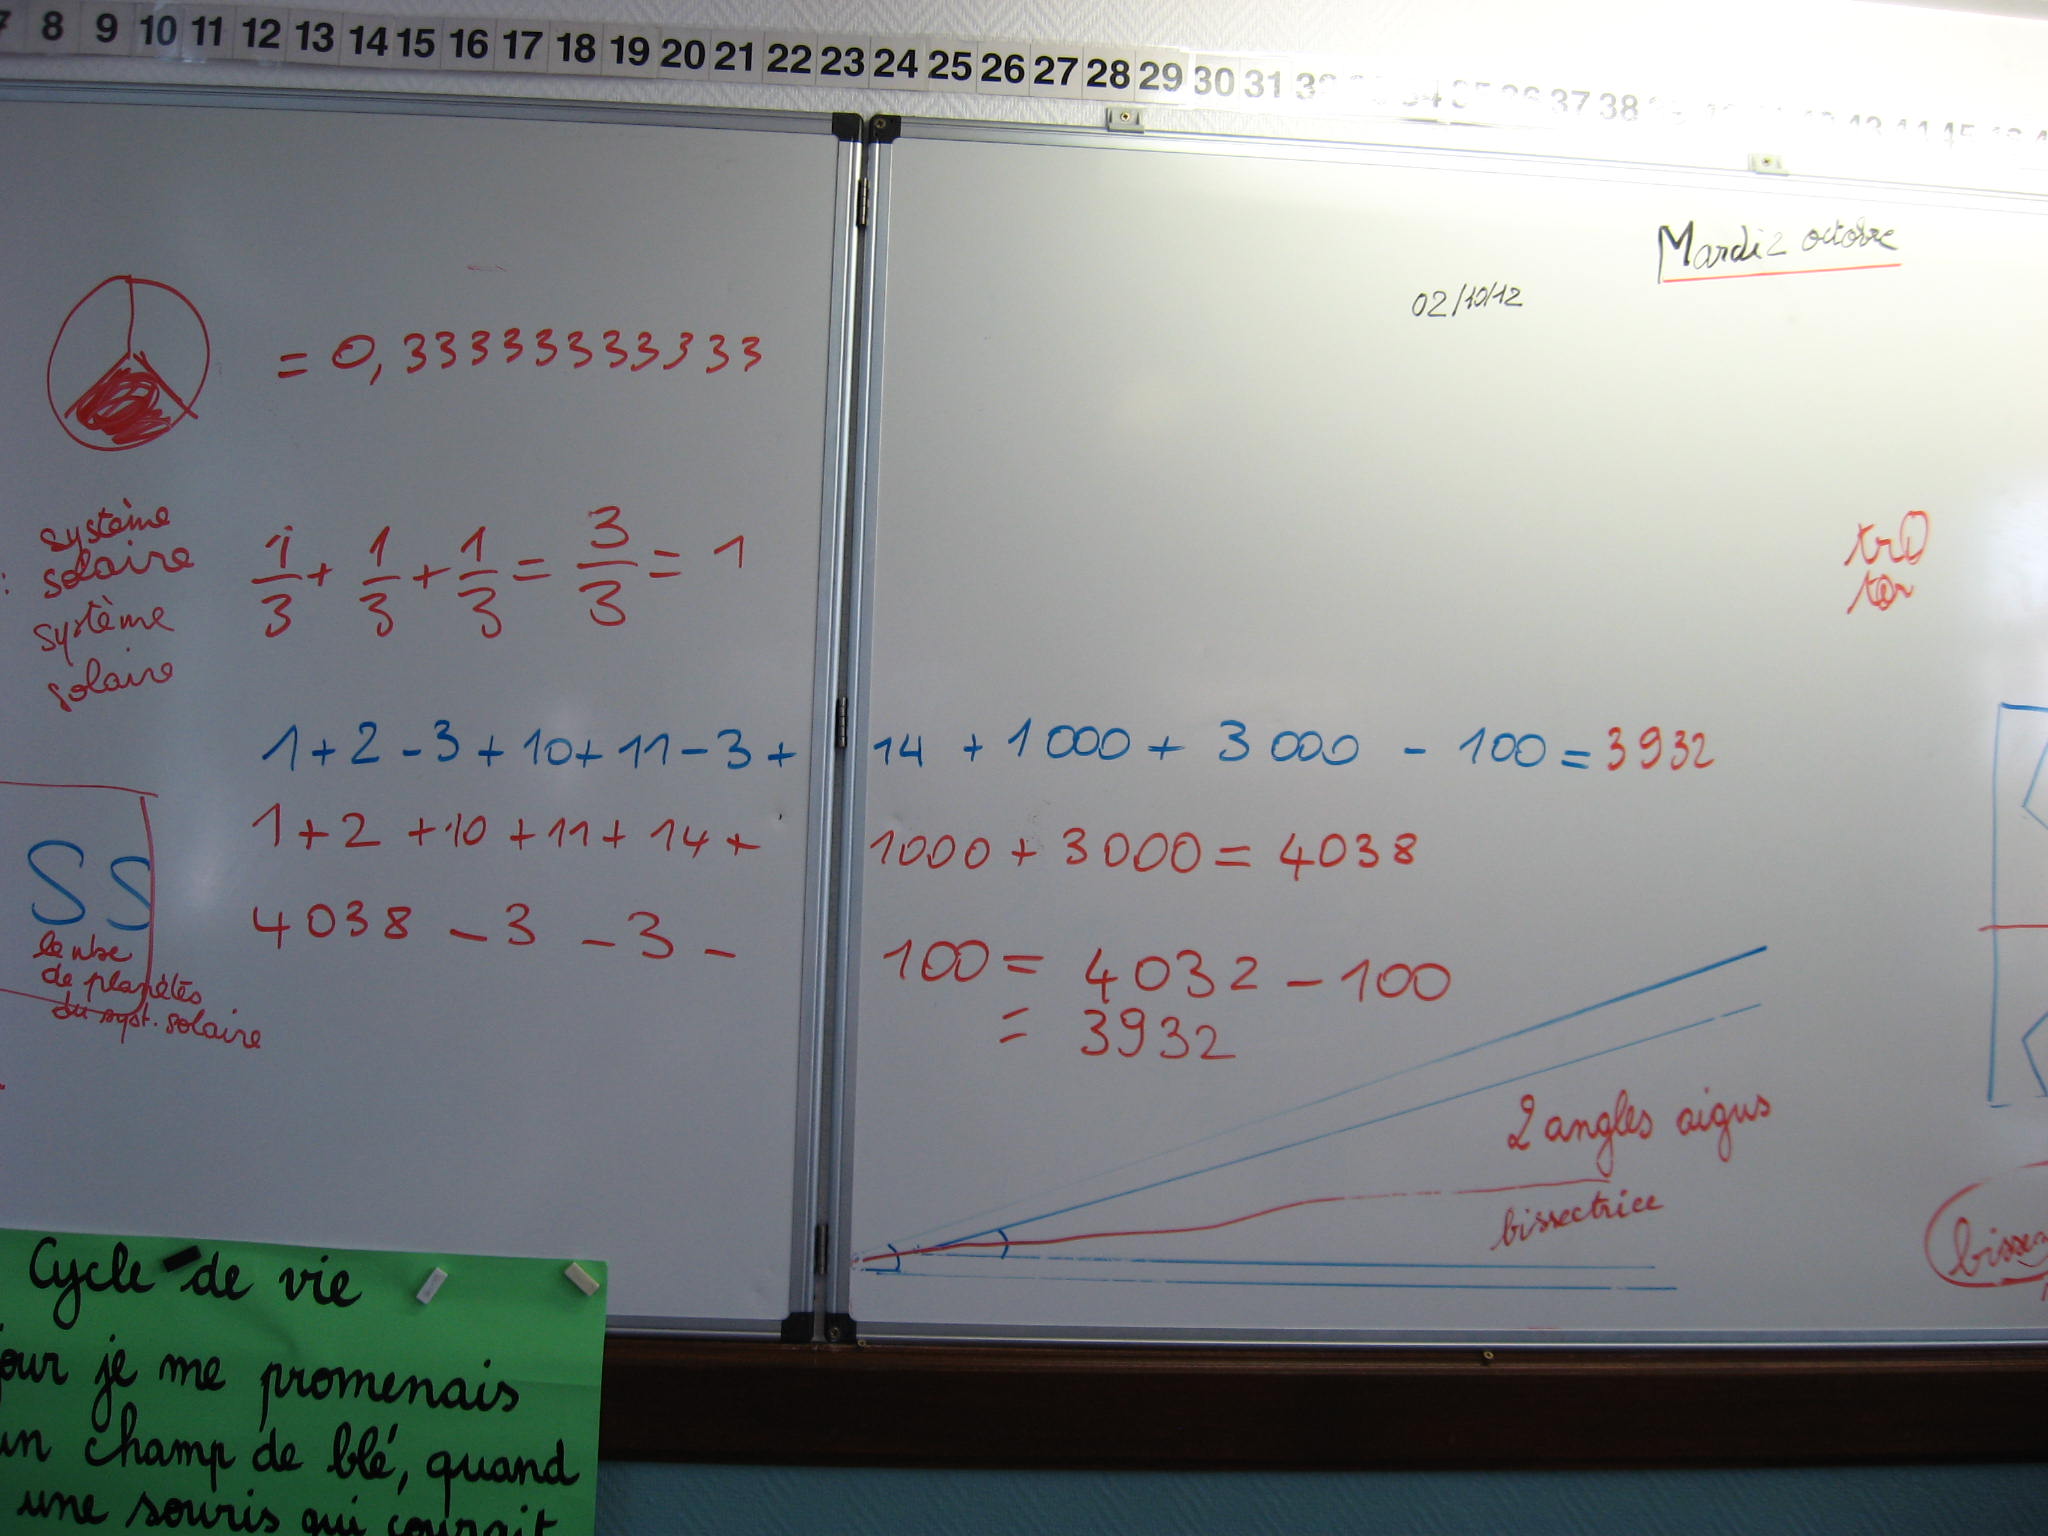 8 9 10 11 12 13 14 15 16 17 18 19 20 21 22 23 24 25 26 27 28 29 30 31 32 34 35 36 37 38
Mardi 2 octobre
02/10/12
= 0,33333333333
système
solaire
système
solaire
1/3 + 1/3 + 1/3 = 3/3 = 1
1 + 2 - 3 + 10 + 11 - 3 + 14 + 1 000 + 3 000 - 100 = 3932
1 + 2 + 10 + 11 + 14 + 1000 + 3000 = 4038
4038 - 3 - 3 - 100 = 4032 - 100
= 3932
SS
le nbre
de planètes
du syst. solaire
2 angles aigus
bissectrice
Cycle de vie
jour je me promenais
un champ de blé, quand
une souris qui courait